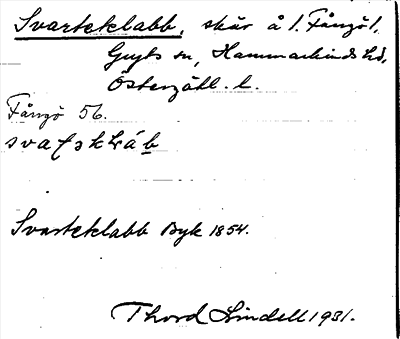 Svarteklabb, skär å /. Fångö /,
Gryts sn, Hammarkinds hd,
Östergötl. l.
Fångö 56.
Svarteklabb Byk 1854.
Thord Lindell 1931.